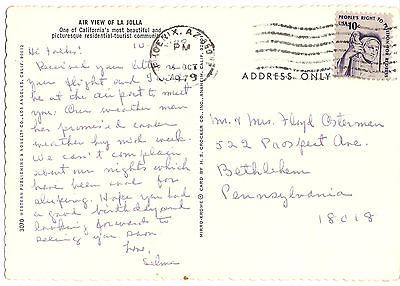 AIR VIEW OF LA JOLLA
One of California's most beautiful and
picturesque residential-tourist communities
Hi Folks!
Received your letter
your flight and I
be at the airport to meet
you. Our weather man
has promised cooler
weather by mid week.
We can't complain
about our nights which
have been cool for
sleeping. Hope you had
a good birthday and
looking forward to
seeing you soon
Love,
Selma
3070 WESTERN PUBLISHING & NOVELTY CO., LOS ANGELES, CALIF. 90013
MIRRO-KROME ® CARD BY H. S. CROCKER CO., INC.
PHOENIX, AZ
PM
OCT
1979
PEOPLE'S RIGHT TO
USA 10c
ADDRESS ONLY
Mr & Mrs. Floyd Osterman
522 Prospect Ave.
Bethlehem
Pennsylvania
18018